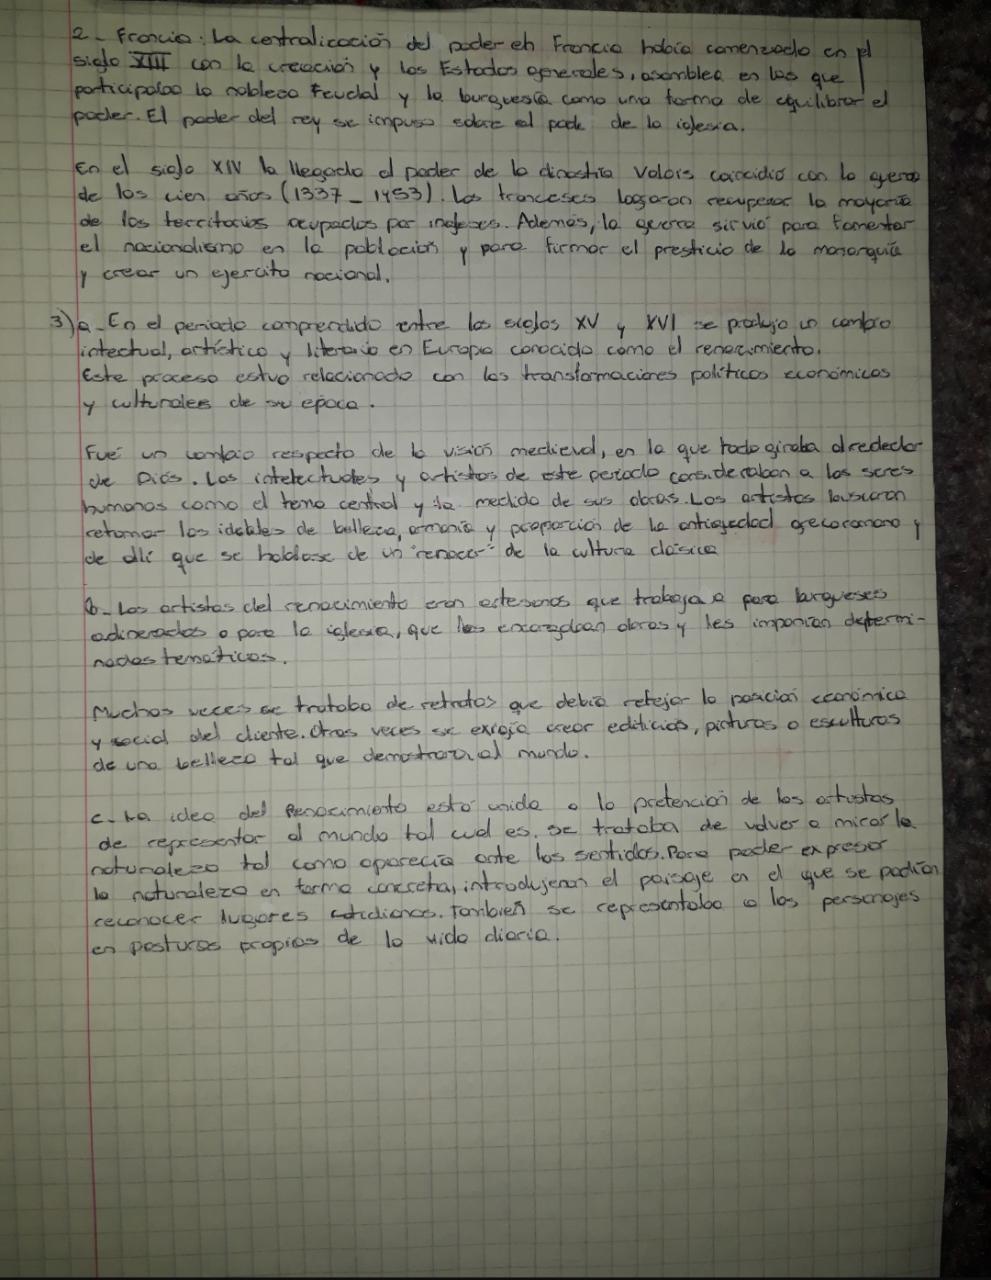 2- Francia: La centralicación del poder en Francia habia comenzado en el
siglo XIII con la creación y los Estados generales, asamblea en las que
participaba la nobleza feudal y la burguesía como una forma de equilibrar el
poder. El poder del rey se impuso sobre el pode de la iglesia.
En el siglo XIV la llegada al poder de la dinastía Valois coincidió con la guerra
de los cien años (1337_1453). Los franceses lograron recuperar la mayoria
de los territorios ocupados por ingleses. Además, la guerra sirvió para fomentar
el nacionalismo en la población y para firmar el presticio de la monarquía
y crear un ejercito nacional.
3) a- En el periodo comprendido entre los siglos XV y XVI se produjo un cambio
intectual, artístico y literario en Europa conocido como el renacimiento.
Este proceso estuvo relacionado con las transformaciones políticas económicas
y culturales de su epoca.
Fué un cambio respecto de la visión medieval, en la que todo giraba alrededor
de Diós. Los intelectuales y artistas de este periodo consideraban a los seres
humanos como el tema central y la medida de sus obras. Los artistas buscaron
retomar los ideales de belleza, armonía y proporción de la antiguedad grecoromana y
de allí que se hablase de un "renacer" de la cultura clásica
b- Los artistas del renacimiento eran artesanos que trabaja a para burgueses
adinerados o para la iglesia, que les encargaban obras y les imponian determi-
nadas temáticas.
Muchas veces se trataba de retratos que debía reflejar la posición económica
y social del cliente. Otras veces se exigía crear edificios, pinturas o esculturas
de una belleza tal que demostrara al mundo.
c- La idea del Renacimiento está unida a la pretención de los artistas
de representar al mundo tal cual es. se trataba de volver a mirar la
naturaleza tal como aparecía ante los sentidos. Para poder expresar
la naturaleza en forma concreta, introdujeron el paisaje en el que se podían
reconocer lugares cotidianos. También se representaba a los personajes
en posturas propias de la vida diaria.